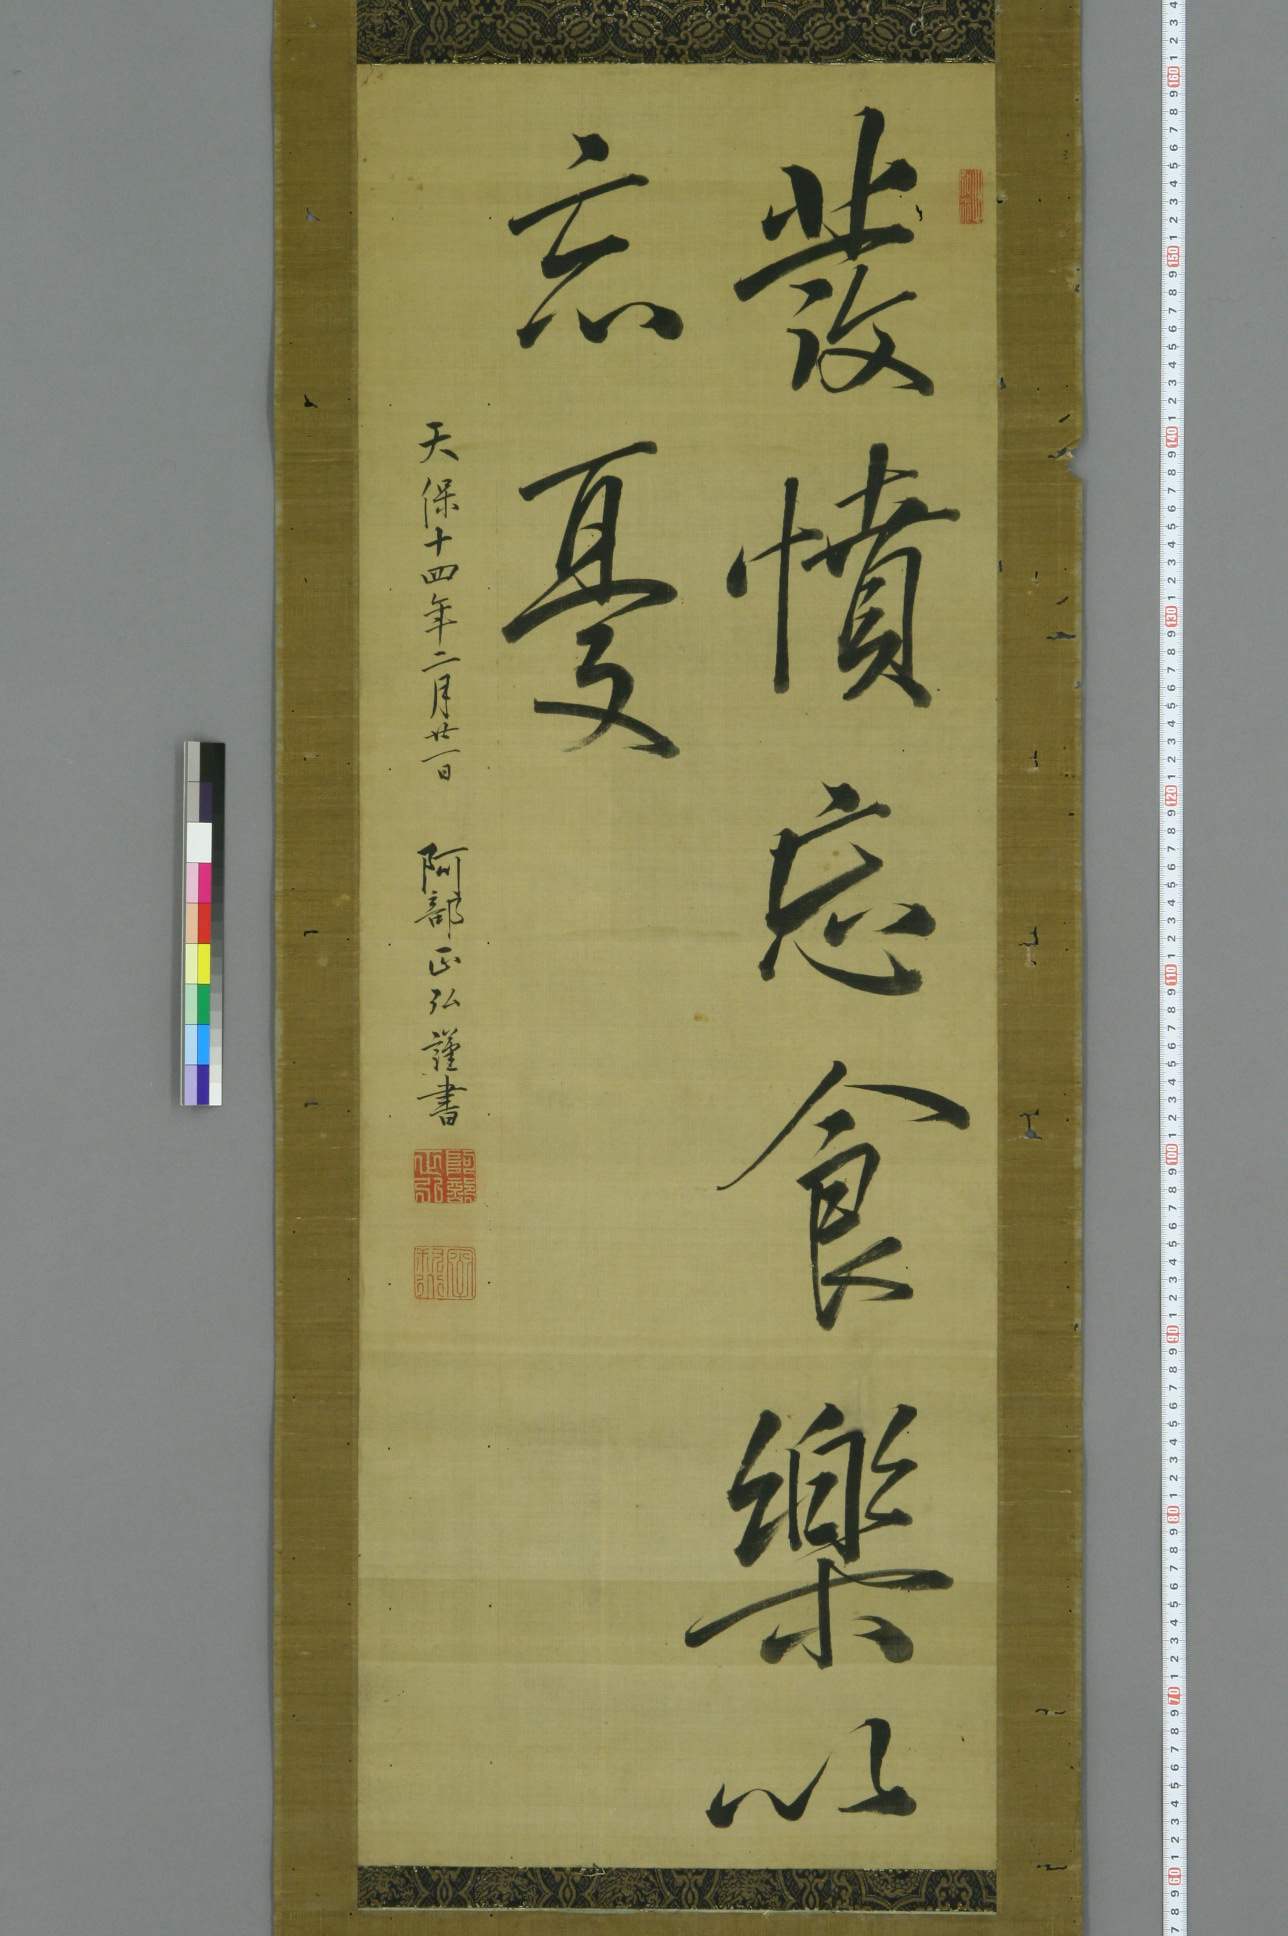 發憤忘食樂以
忘憂
天保十四年二月廿一日 阿部正弘謹書
阿部正弘